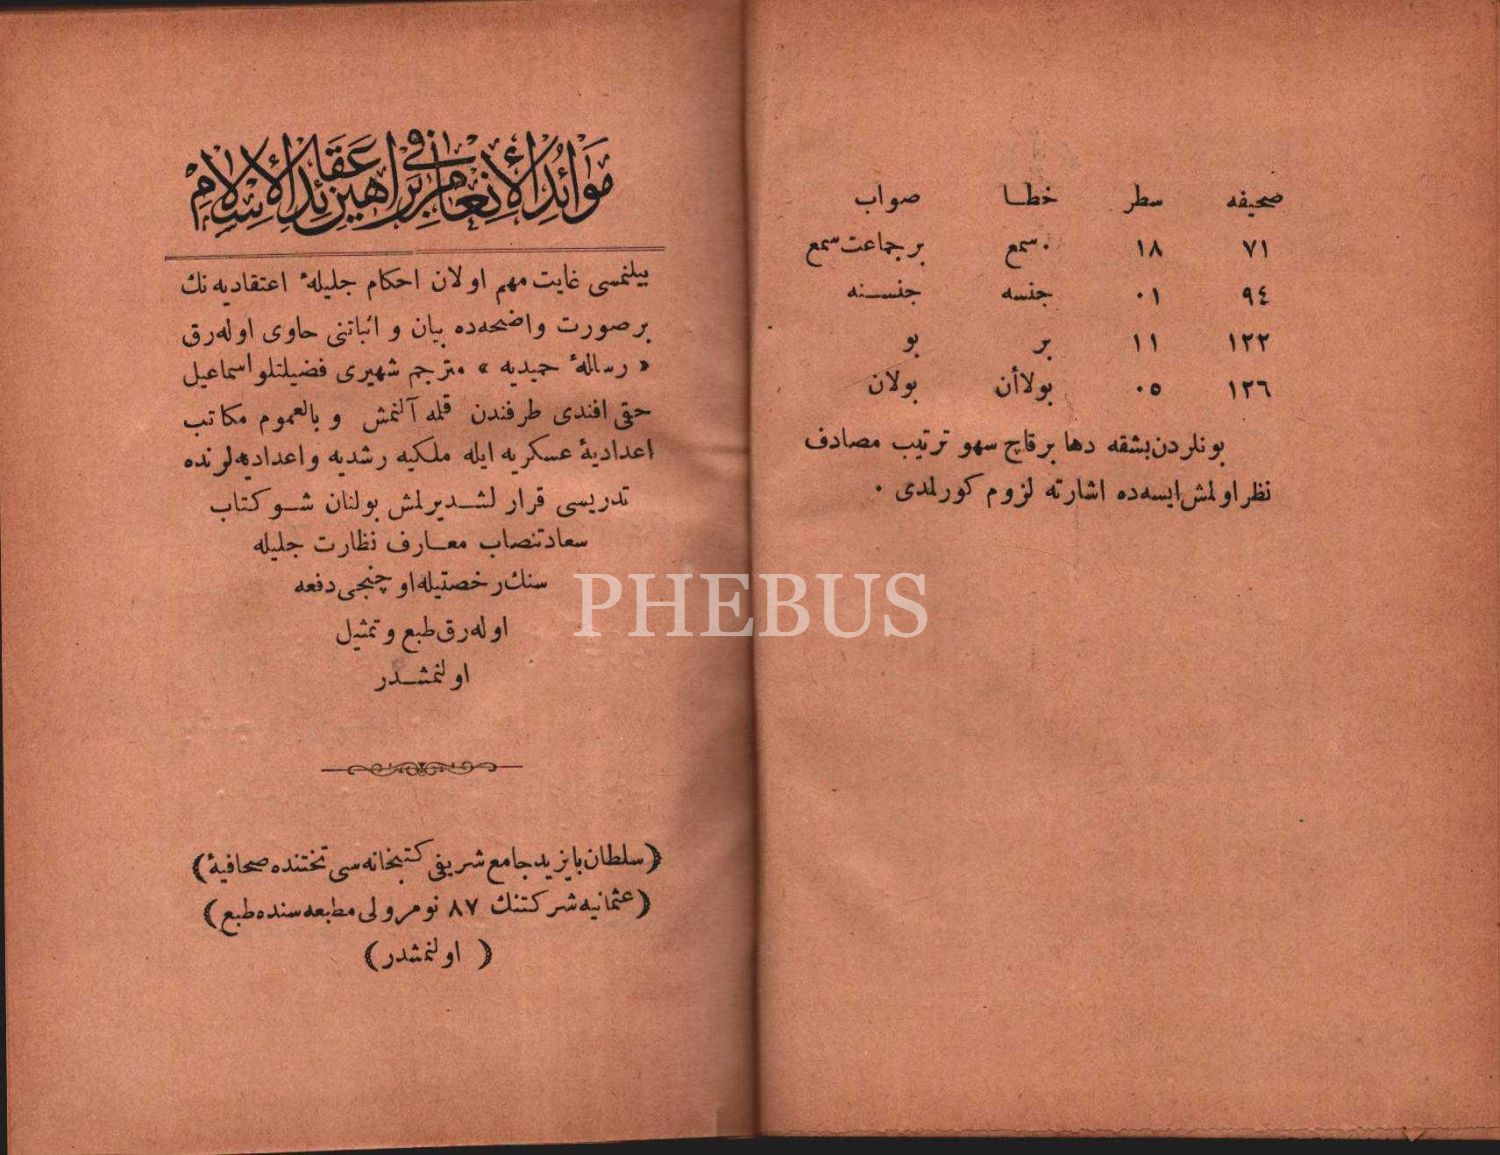 صحیفه سطر خطـا صواب
٧١ ١٨ ٠سمع بر جماعت سمع
٩٤ ٠١ جنسه جنسـنه
١٢٢ ١١ بر بو
١٢٦ ٠٥ بولاأن بولان
بونلردن بشقه دها بر قاچ سهو ترتیب مصادف
نظر اولمش ایسه ده اشارته لزوم کورلمدی ٠
موائد الأنعام فی براهین عقائد الإسلام
بیلنمسی غایت مهم اولان احکام جلیلهٔ اعتقادیه نك
بر صورت واضحه ده بیان و اثباتنی حاوی اوله رق
« رسالهٔ حمیدیه » مترجم شهیری فضیلتلو اسماعیل
حقی افندی طرفندن قلمه آلنمش و بالعموم مکاتب
اعدادیهٔ عسکریه ایله ملکیه رشدیه و اعدادیه لرنده
تدریسی قرار لشـدیرلمش بولنان شـو کتاب
سعادتنصاب معـارف نظارت جلیله
سنك رخصتیله اوچنجی دفعه
اوله رق طبع و تمثیل
اولنمشـدر
(سلطان بایزید جامع شریفی کتبخانه سی تختنده صحافیهٔ)
(عثمانیه شرکتنك ٨٧ نومرولی مطبعه سنده طبع)
( اولنمشدر )
PHEBUS